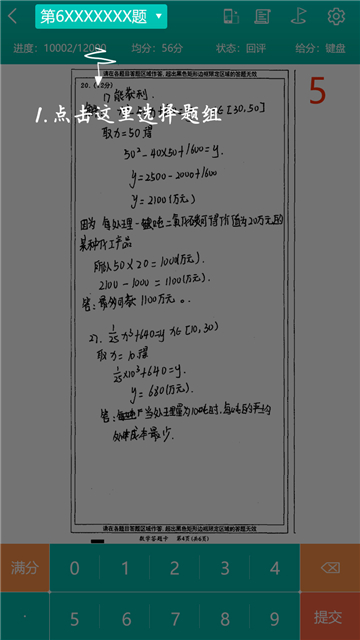 第6XXXXXXX题
进度：10002/12000 均分：56分 状态：回评 给分：键盘
请在各题目答题区域作答，超出黑色矩形边框限定区域的答题无效
5
20.
不能获利.
[30.50]
1.点击这里选择题组
取x=50得
50²-40×50+1600=y.
y=2500-2000+1600
y=2100(万元)
因为 每处理一吨
20万元的
某种化工产品
所以50×20=1000(万元).
2100-1000=1100(万元).
答:最
1100万元。
21. 1/25 x³+640=y x∈[10,30)
取x=10.得
1/25×10³+640=y.
y=680(万元).
答:
当处理量为
成本最少.
请在各题目答题区域作答，超出黑色矩形边框限定区域的答题无效
数学答题卡 第4页(共6页)
满分 0 1 2 3 4
· 5 6 7 8 9 提交